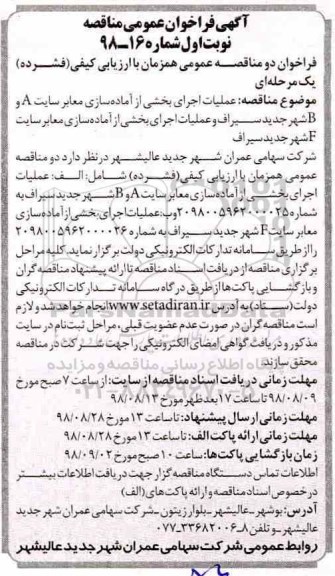 آگهی فراخوان عمومی مناقصه
نوبت اول شماره ۱۶-۹۸
فراخوان دو مناقصه عمومی همزمان با ارزیابی کیفی (فشرده)
یک مرحله‌ای
موضوع مناقصه: عملیات اجرای بخشی از آماده‌سازی معابر سایت A و
B شهر جدید سیراف و عملیات اجرای بخشی از آماده‌سازی معابر سایت
F شهر جدید سیراف
شرکت سهامی عمران شهر جدید عالیشهر در نظر دارد دو مناقصه
عمومی همزمان با ارزیابی کیفی (فشرده) شامل: الف: عملیات
اجرای بخشی از آماده‌سازی معابر سایت A و B شهر جدید سیراف به
شماره ۲۰۹۸۰۰۵۹۶۲۰۰۰۰۲۵ و ب: عملیات اجرای بخشی از آماده‌سازی
معابر سایت F شهر جدید سیراف به شماره ۲۰۹۸۰۰۵۹۶۲۰۰۰۰۳۶
را از طریق سامانه تدارکات الکترونیکی دولت برگزار نماید. کلیه مراحل
برگزاری مناقصه از دریافت اسناد مناقصه تا ارائه پیشنهاد مناقصه‌گران
و بازگشایی پاکت‌ها از طریق درگاه سامانه تدارکات الکترونیکی
دولت (ستاد) به آدرس www.setadiran.ir انجام خواهد شد و لازم
است مناقصه‌گران در صورت عدم عضویت قبلی، مراحل ثبت‌نام در سایت
مذکور و دریافت گواهی امضای الکترونیکی را جهت شرکت در مناقصه
محقق سازند.
مهلت زمانی دریافت اسناد مناقصه از سایت: از ساعت ۷ صبح مورخ
۹۸/۰۸/۰۹ تا ساعت ۱۷ بعدظهر مورخ ۹۸/۰۸/۱۳
مهلت زمانی ارسال پیشنهاد: تا ساعت ۱۳ مورخ ۹۸/۰۸/۲۸
مهلت زمانی ارائه پاکت الف: تا ساعت ۱۳ مورخ ۹۸/۰۸/۲۸
زمان بازگشایی پاکت‌ها: ساعت ۱۰ صبح مورخ ۹۸/۰۹/۰۲
اطلاعات تماس دستگاه مناقصه‌گزار جهت دریافت اطلاعات بیشتر
در خصوص اسناد مناقصه و ارائه پاکت‌های (الف)
آدرس: بوشهر-عالیشهر-بلوار زیتون-شرکت سهامی عمران شهر جدید
عالیشهر- و تلفن ۸-۳۳۶۸۲۰۰۶-۰۷۷
روابط عمومی شرکت سهامی عمران شهر جدید عالیشهر